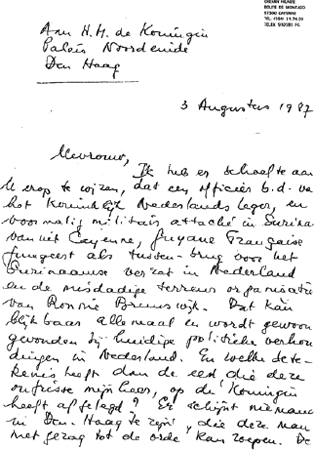 ROUTE DE MONTABO
97300 CAYENNE
Aan H.M. de Koningin
Paleis Noordeinde
Den Haag
3 Augustus 1987
Mevrouw,
Ik heb er behoefte aan
U erop te wijzen, dat een officier b.d. van
het Koninklijk Nederlands leger, en
voormalig militair attaché in Suriname
vanuit Cayenne, Guyane Française
fungeert als tussen-brug voor het
Surinaamse verzet in Nederland
en de misdadige terreur organisatie
van Ronnie Brunswijk. Dat kan
blijkbaar allemaal en wordt gewoon
gevonden bij huidige politieke verhou
dingen in Nederland. En welke bete-
kenis heeft dan de eed die deze
onfrisse mijnheer, op de Koningin
heeft afgelegd? Er schijnt niemand
in Den Haag te zijn, die deze man
met gezag tot de orde kan roepen. De